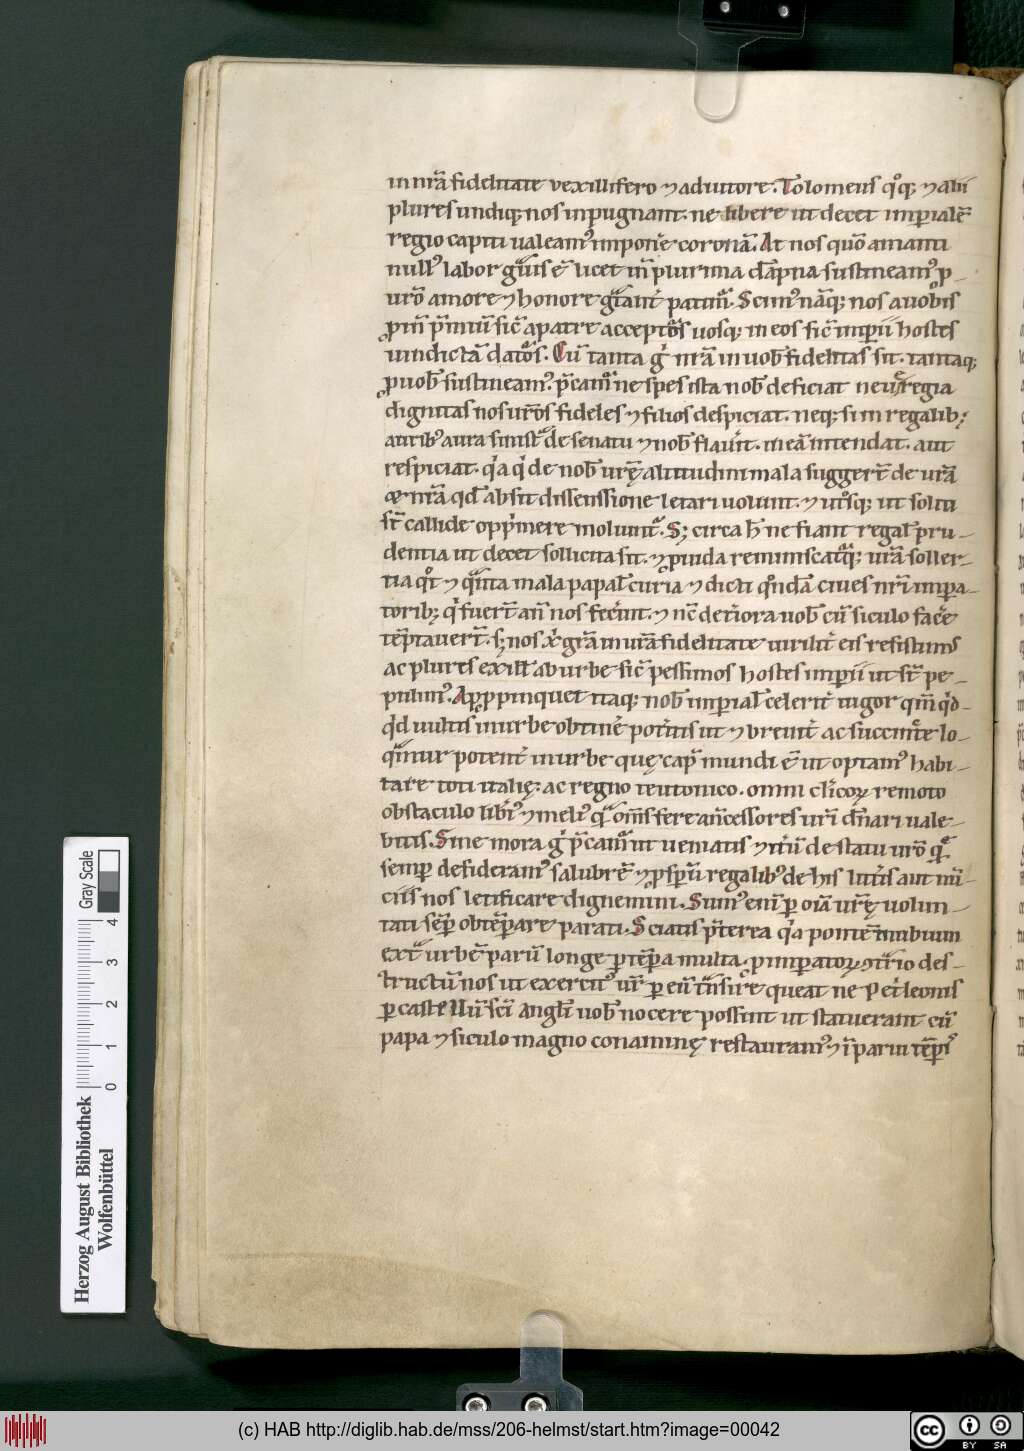 in nr̄a fidelitate vexillifero ⁊ adiutore. Tolomeus qͦq; ⁊ alii
plures undiq; nos inpugnant. ne libere ut decet imp̱ialē
regio capiti ualeamꝰ imponͤe coronā. At nos quō amanti
nullꝰ labor gͣuis ē licet in̄ plurima dāpna sustineamꝰ ꝓ
uro̅ amore ⁊ honore gͣtant᷑ patimͬ. Scimꝰ nāq; nos a uobis
p̱m̄ p̄miū sic̄ a patre acceptos uosq; in eos sic̄ imp̱ii hostes
uindictā datͦos. Cū tanta gͥ nr̄a in uob̄ fidelitas sit. tantaq;
ꝓ uob̄ sustineamꝰ. p̄camͬ ne spes ista nob̄ deficiat ne ur̄a regia
dignitas nos ur̄os fideles ⁊ filios despiciat. neq; si in regalib;
aurib̄ aura sinistͣ de senatu ⁊ nob̄ flauͥit. in eā intendat. aut
respiciat. qͥa qͥ de nob̄ ur̄ę altitudini mala suggerͤt de ur̄a
& nr̄a qd̄ absit dissenssione letari uolunt. ⁊ utͦsq; ut soliti
st̄ callide opp̄mere moliuntͬ. S; circa h̄ ne fiant regal̄ pru-
dentia ut decet sollicita sit. ⁊ ꝓuida reminiscatͬq; ur̄a soller-
tia qͦt ⁊ qͣnta mala papal̄ curia ⁊ dicti qͦndā ciues nr̄i imp̱a-
torib; qͥ fuer̄t an̄ nos fecͤint. ⁊ nc̄ det̄iora uob̄ cū siculo facͤe
tēptauer̄t. s; nos xͥ grā in ur̄a fidelitate uirilit᷑ eis resistimꝰ
ac plures exill̄t ab urbe sic̄ pessimos hostes imp̱ii ut st̄ pe-
pulimꝰ. Appropinquet itaq; nob̄ imp̱ial̄ celerit᷑ uigor qm̄ qͥd-
qͥd uultis in urbe obtinͤe potͤitis ut ⁊ breuit᷑ ac succincͭe lo-
qͣmur potent᷑ in urbe quę capͭ mundi ē ut optamꝰ habi-
tare toti italię. ac regno teutonico. omni cl̄icoꝝ remoto
obstaculo lib̄iꝰ ⁊ meliꝰ qͣ om̄s fere ancessores ur̄i dn̄ari uale-
bitis. Sine mora gͥ p̄camͬ ut ueniatis ⁊ int̄im de statu ur̄o
semp̱ desideramꝰ salubrē ⁊ ꝓsp̱ū regalibꝰ de his litt̄is aut nū-
ciis nos letificare dignemini. Sumꝰ eni̅ p̱ oīa ur̄ę uolun-
tati sēp̱ obtēp̱are parati. Sciatis p̄terea qͥa pontē miluium
extͣ urbē parū longe p̱ tēp̱a multa. ꝓ imp̱atoꝝ ꝯtͣrio des-
tructū nos ut exercitꝰ ur̄ p̱ eū tͣnsire queat ne Pet̄leonis
p̱ castellū sc̄i Angl̄i uob̄ nocere possint ut statuerant cū
papa ⁊ siculo magno conaminę restauramꝰ ⁊ in parui tēp̱is
Herzog August Bibliothek
Wolfenbüttel
0 1 2 3 4
Gray Scale
(c) HAB http://diglib.hab.de/mss/206-helmst/start.htm?image=00042
cc BY SA